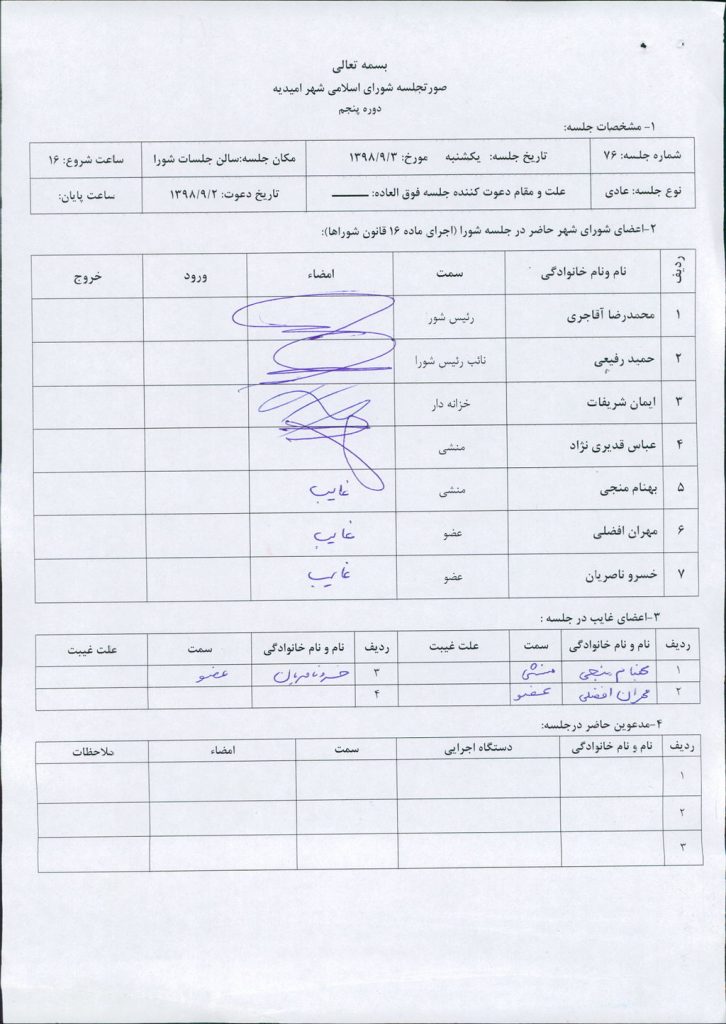 بسمه تعالی
صورتجلسه شورای اسلامی شهر امیدیه
دوره پنجم
۱- مشخصات جلسه:
شماره جلسه: ۷۶ تاریخ جلسه: یکشنبه مورخ: ۱۳۹۸/۹/۳ مکان جلسه:سالن جلسات شورا ساعت شروع: ۱۶
نوع جلسه: عادی علت و مقام دعوت کننده جلسه فوق العاده: ـــــــ تاریخ دعوت: ۱۳۹۸/۹/۲ ساعت پایان:
۲-اعضای شورای شهر حاضر در جلسه شورا (اجرای ماده ۱۶ قانون شوراها):
ردیف نام ونام خانوادگی سمت امضاء ورود خروج
۱ محمدرضا آقاجری رئیس شور
۲ حمید رفیعی نائب رئیس شورا
۳ ایمان شریفات خزانه دار
۴ عباس قدیری نژاد منشی
۵ بهنام منجی منشی غایب
۶ مهران افضلی عضو غایب
۷ خسرو ناصریان عضو غایب
۳-اعضای غایب در جلسه :
ردیف نام و نام خانوادگی سمت علت غیبت ردیف نام و نام خانوادگی سمت علت غیبت
۱ بهنام منجی منشی ۳ خسرو ناصریان عضو
۲ مهران افضلی عضو ۴
۴-مدعوین حاضر درجلسه:
ردیف نام و نام خانوادگی دستگاه اجرایی سمت امضاء ملاحظات
۱
۲
۳